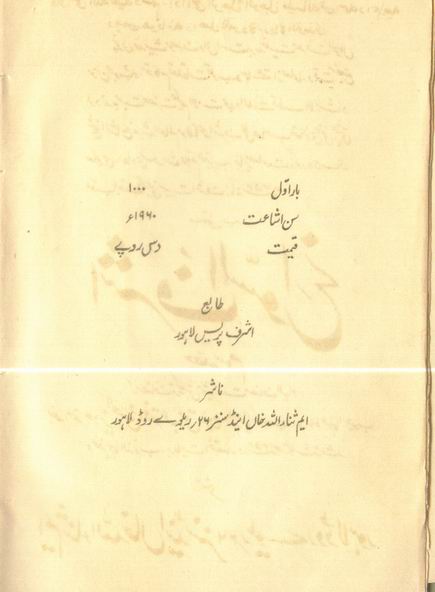 بار اوّل ۱۰۰۰
سن اشاعت ۱۹۶۰ء
قیمت دس روپے
طابع
اشرف پریس لاہور
ناشر
ایم ثناء اللہ خاں اینڈ سنز ۲۶ ریلوے روڈ لاہور